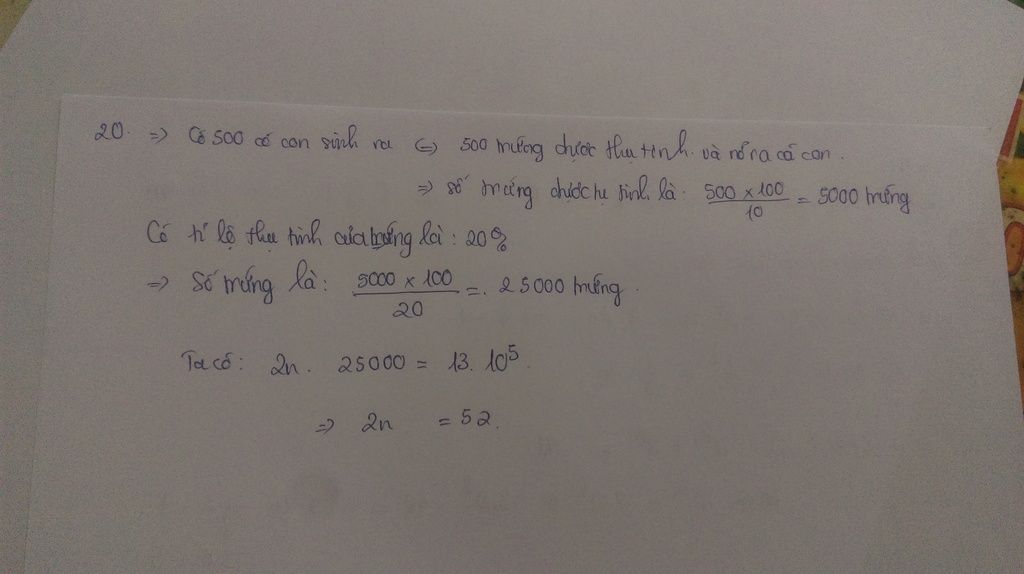 20. => Có 500 cá con sinh ra <=> 500 trứng được thụ tinh và nở ra cá con.
=> số trứng được tụ tinh là: \frac{500 × 100}{10} = 5000 trứng
Có tỉ lệ thụ tinh của trứng là: 20%
=> Số trứng là: \frac{5000 × 100}{20} = 25000 trứng.
Ta có: 2n. 25000 = 13. 10^5.
=> 2n = 52.